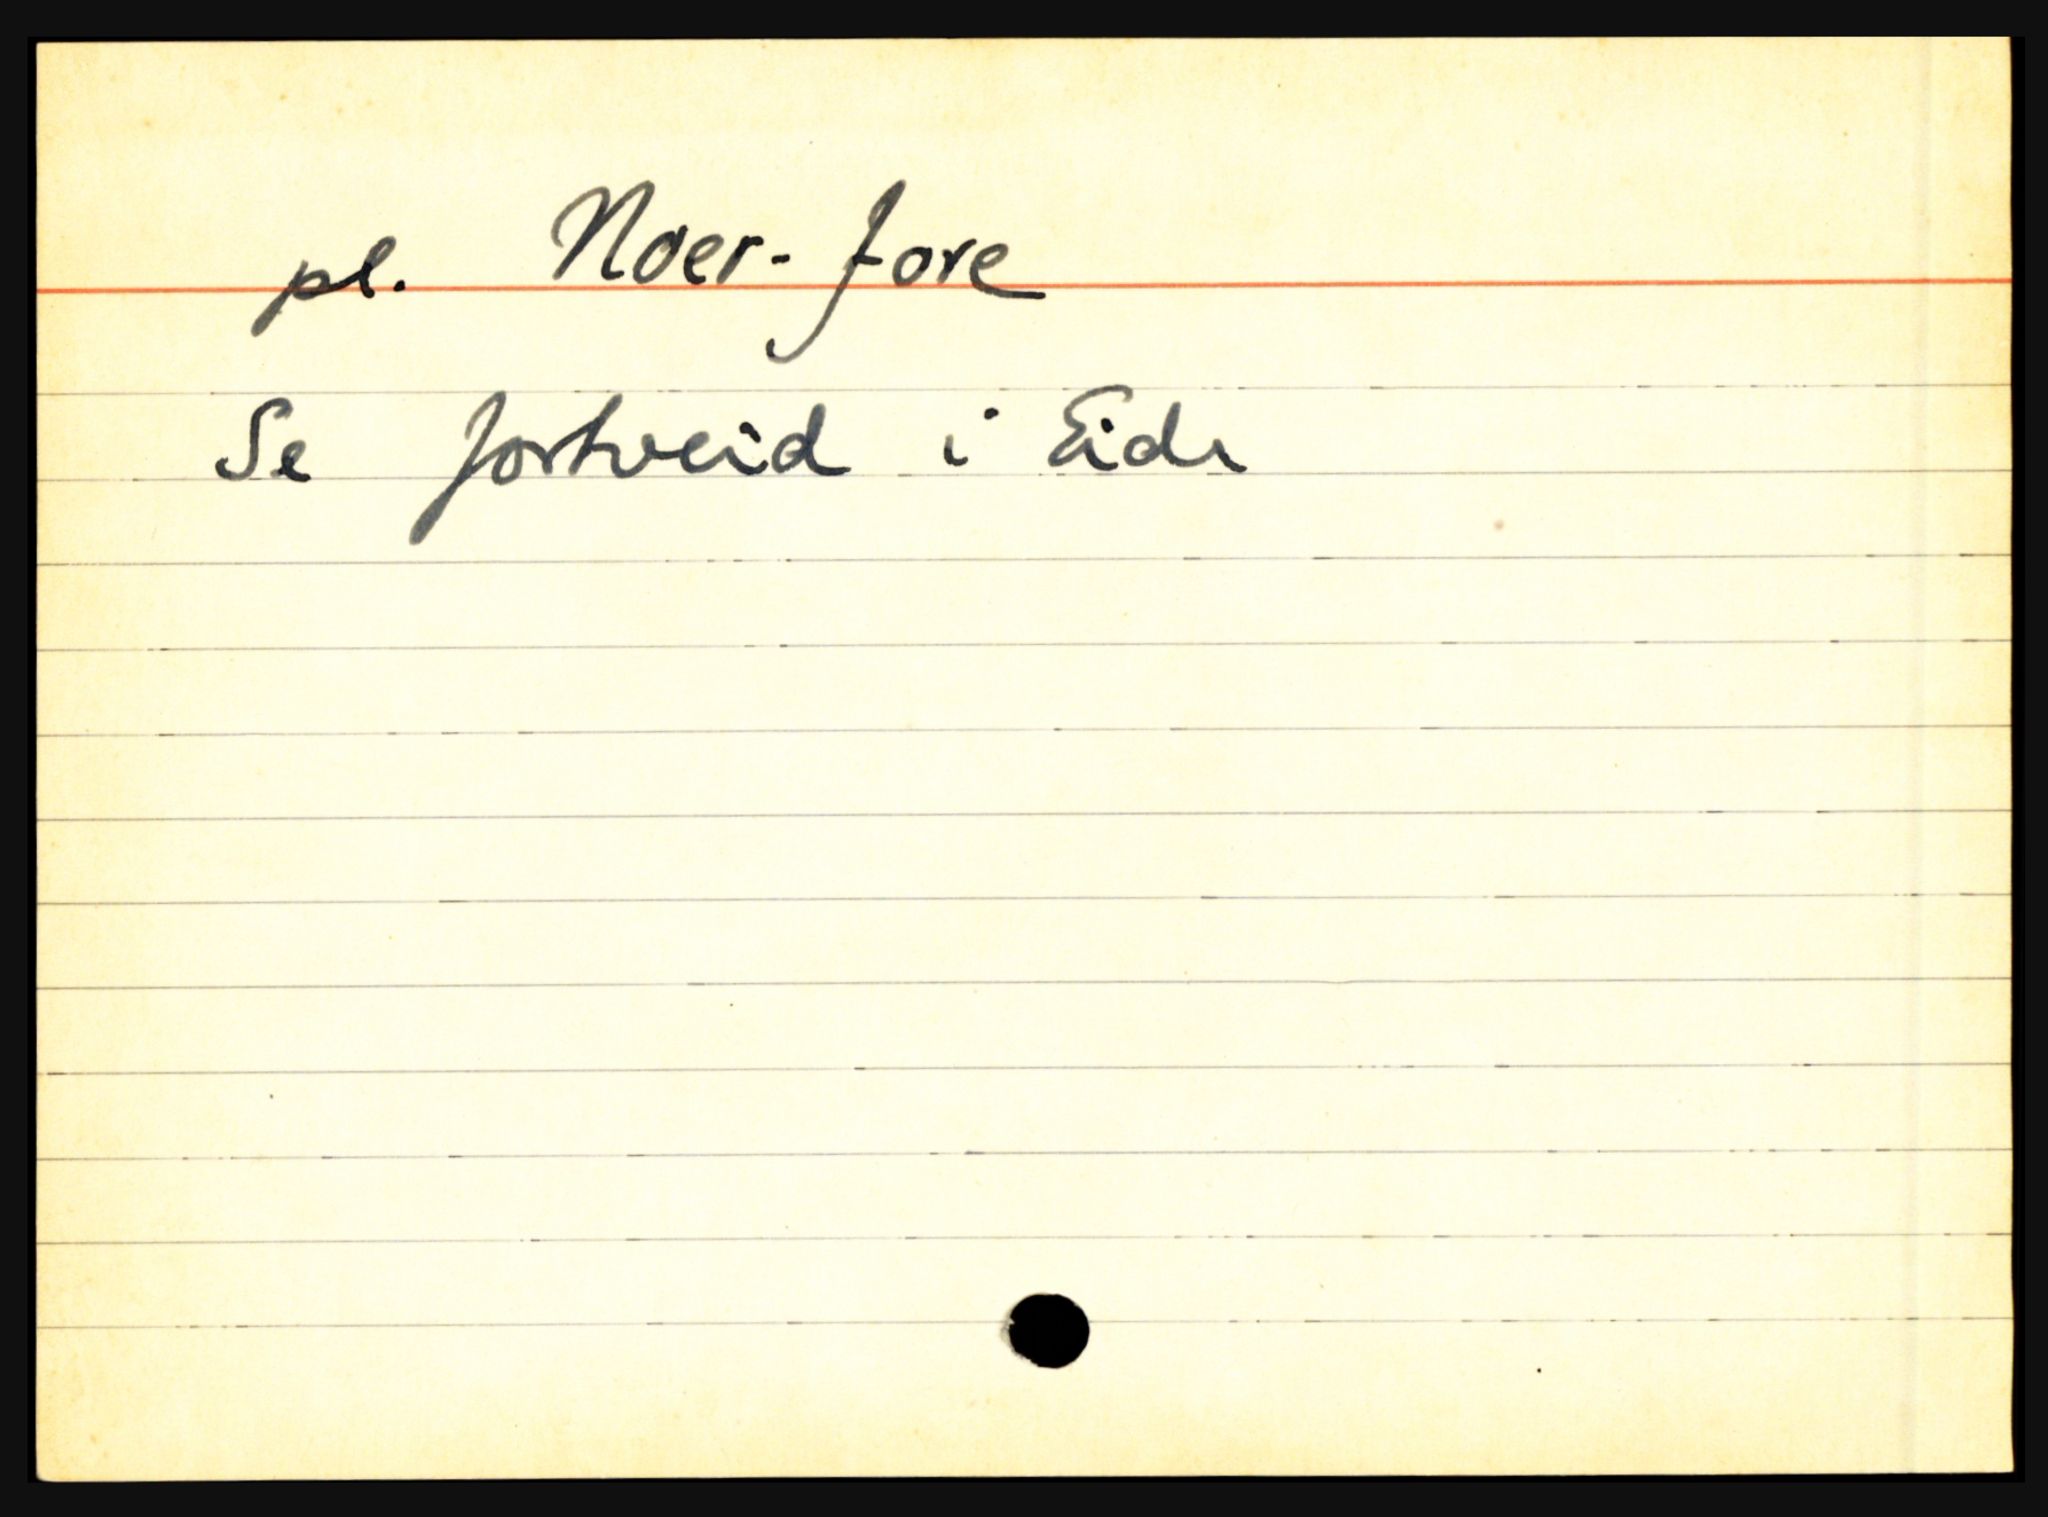 pl. Noer-fore
Se fortveid i Eide